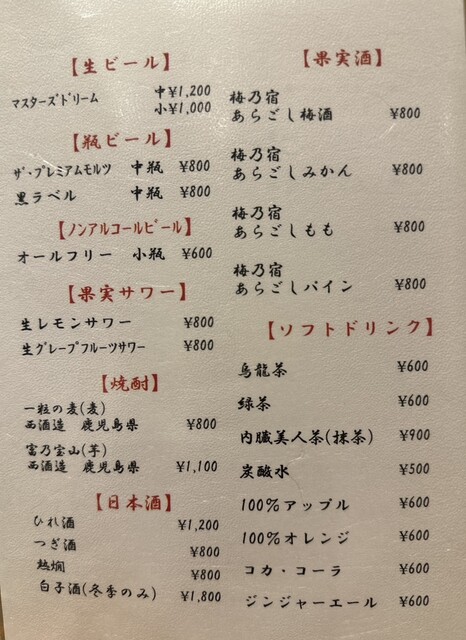 【生ビール】
マスターズドリーム 中¥1,200
小¥1,000
【瓶ビール】
ザ・プレミアムモルツ 中瓶 ¥800
黒ラベル 中瓶 ¥800
【ノンアルコールビール】
オールフリー 小瓶 ¥600
【果実サワー】
生レモンサワー ¥800
生グレープフルーツサワー ¥800
【焼酎】
一粒の麦(麦)
西酒造 鹿児島県 ¥800
富乃宝山(芋)
西酒造 鹿児島県 ¥1,100
【日本酒】
ひれ酒 ¥1,200
つぎ酒 ¥800
熱燗 ¥800
白子酒(冬季のみ) ¥1,800
【果実酒】
梅乃宿
あらごし梅酒 ¥800
梅乃宿
あらごしみかん ¥800
梅乃宿
あらごしもも ¥800
梅乃宿
あらごしパイン ¥800
【ソフトドリンク】
烏龍茶 ¥600
緑茶 ¥600
内臓美人茶(抹茶) ¥900
炭酸水 ¥500
100%アップル ¥600
100%オレンジ ¥600
コカ・コーラ ¥600
ジンジャーエール ¥600